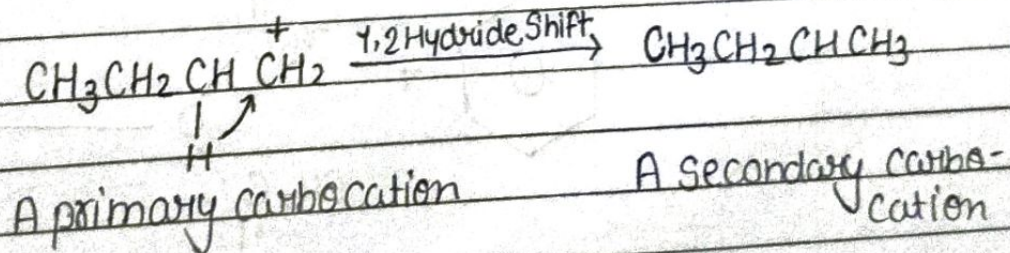 +
CH3CH2CH CH2 1,2 Hydride Shift CH3CH2CHCH3
H
A primary carbocation A secondary carbo-
cation